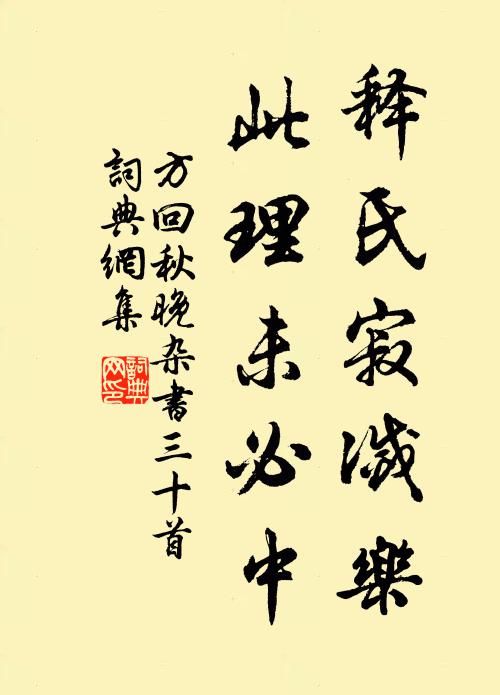 释氏寂滅樂
此理未必中
方回秋晚杂書三十首
詞典網集
詞典网印